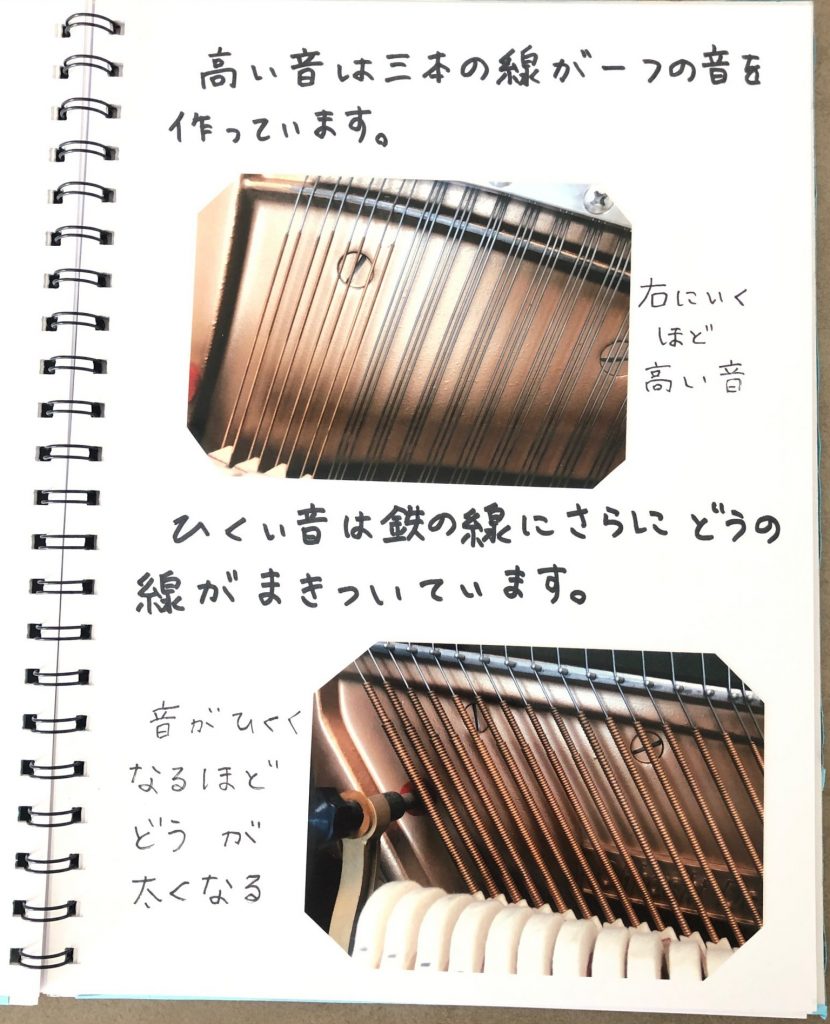 高い音は三本の線が一つの音を
作っています。
右にいく
ほど
高い音
ひくい音は鉄の線にさらに どうの
線がまきついています。
音がひくく
なるほど
どうが
太くなる